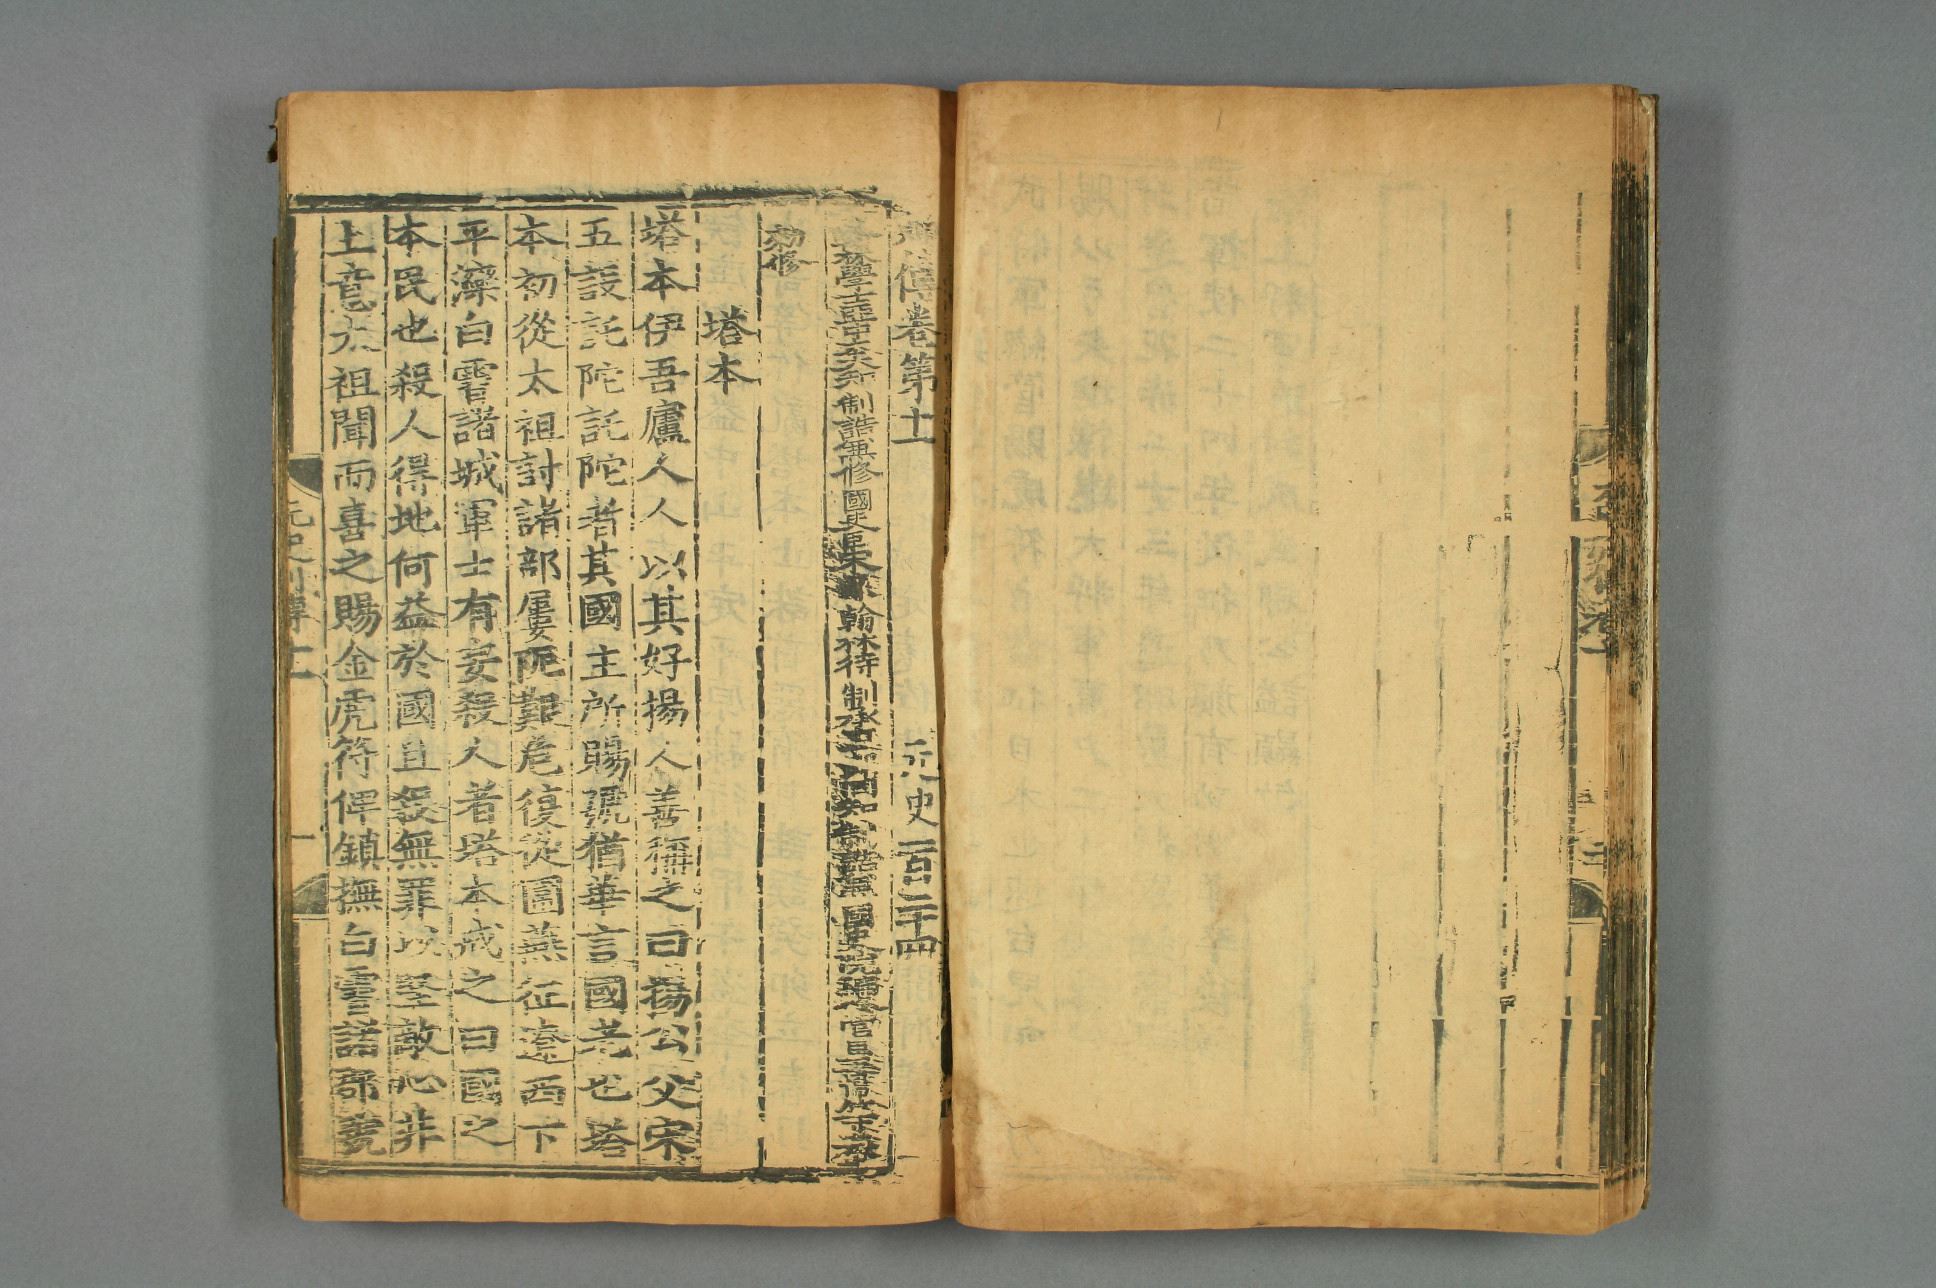 列傳卷第十一 元史一百二十四
翰林學士亞中大夫知制誥兼修國史臣宋濂翰林待制承直郎同知制誥兼國史院編修官臣王禕等奉
勑修
塔本
塔本伊吾廬人人以其好揚人善稱之曰揚公父宋
五設託陀託陀者其國主所賜號猶華言國老也塔
本初從太祖討諸部屢阨艱危復從圍燕征遼西下
平灤白霫諸城軍士有妄殺人者塔本戒之曰國之
本民也殺人得地何益於國且殺無罪以堅敵心非
上意太祖聞而喜之賜金虎符俾鎮撫白霫諸郡號
元史列傳十一 一